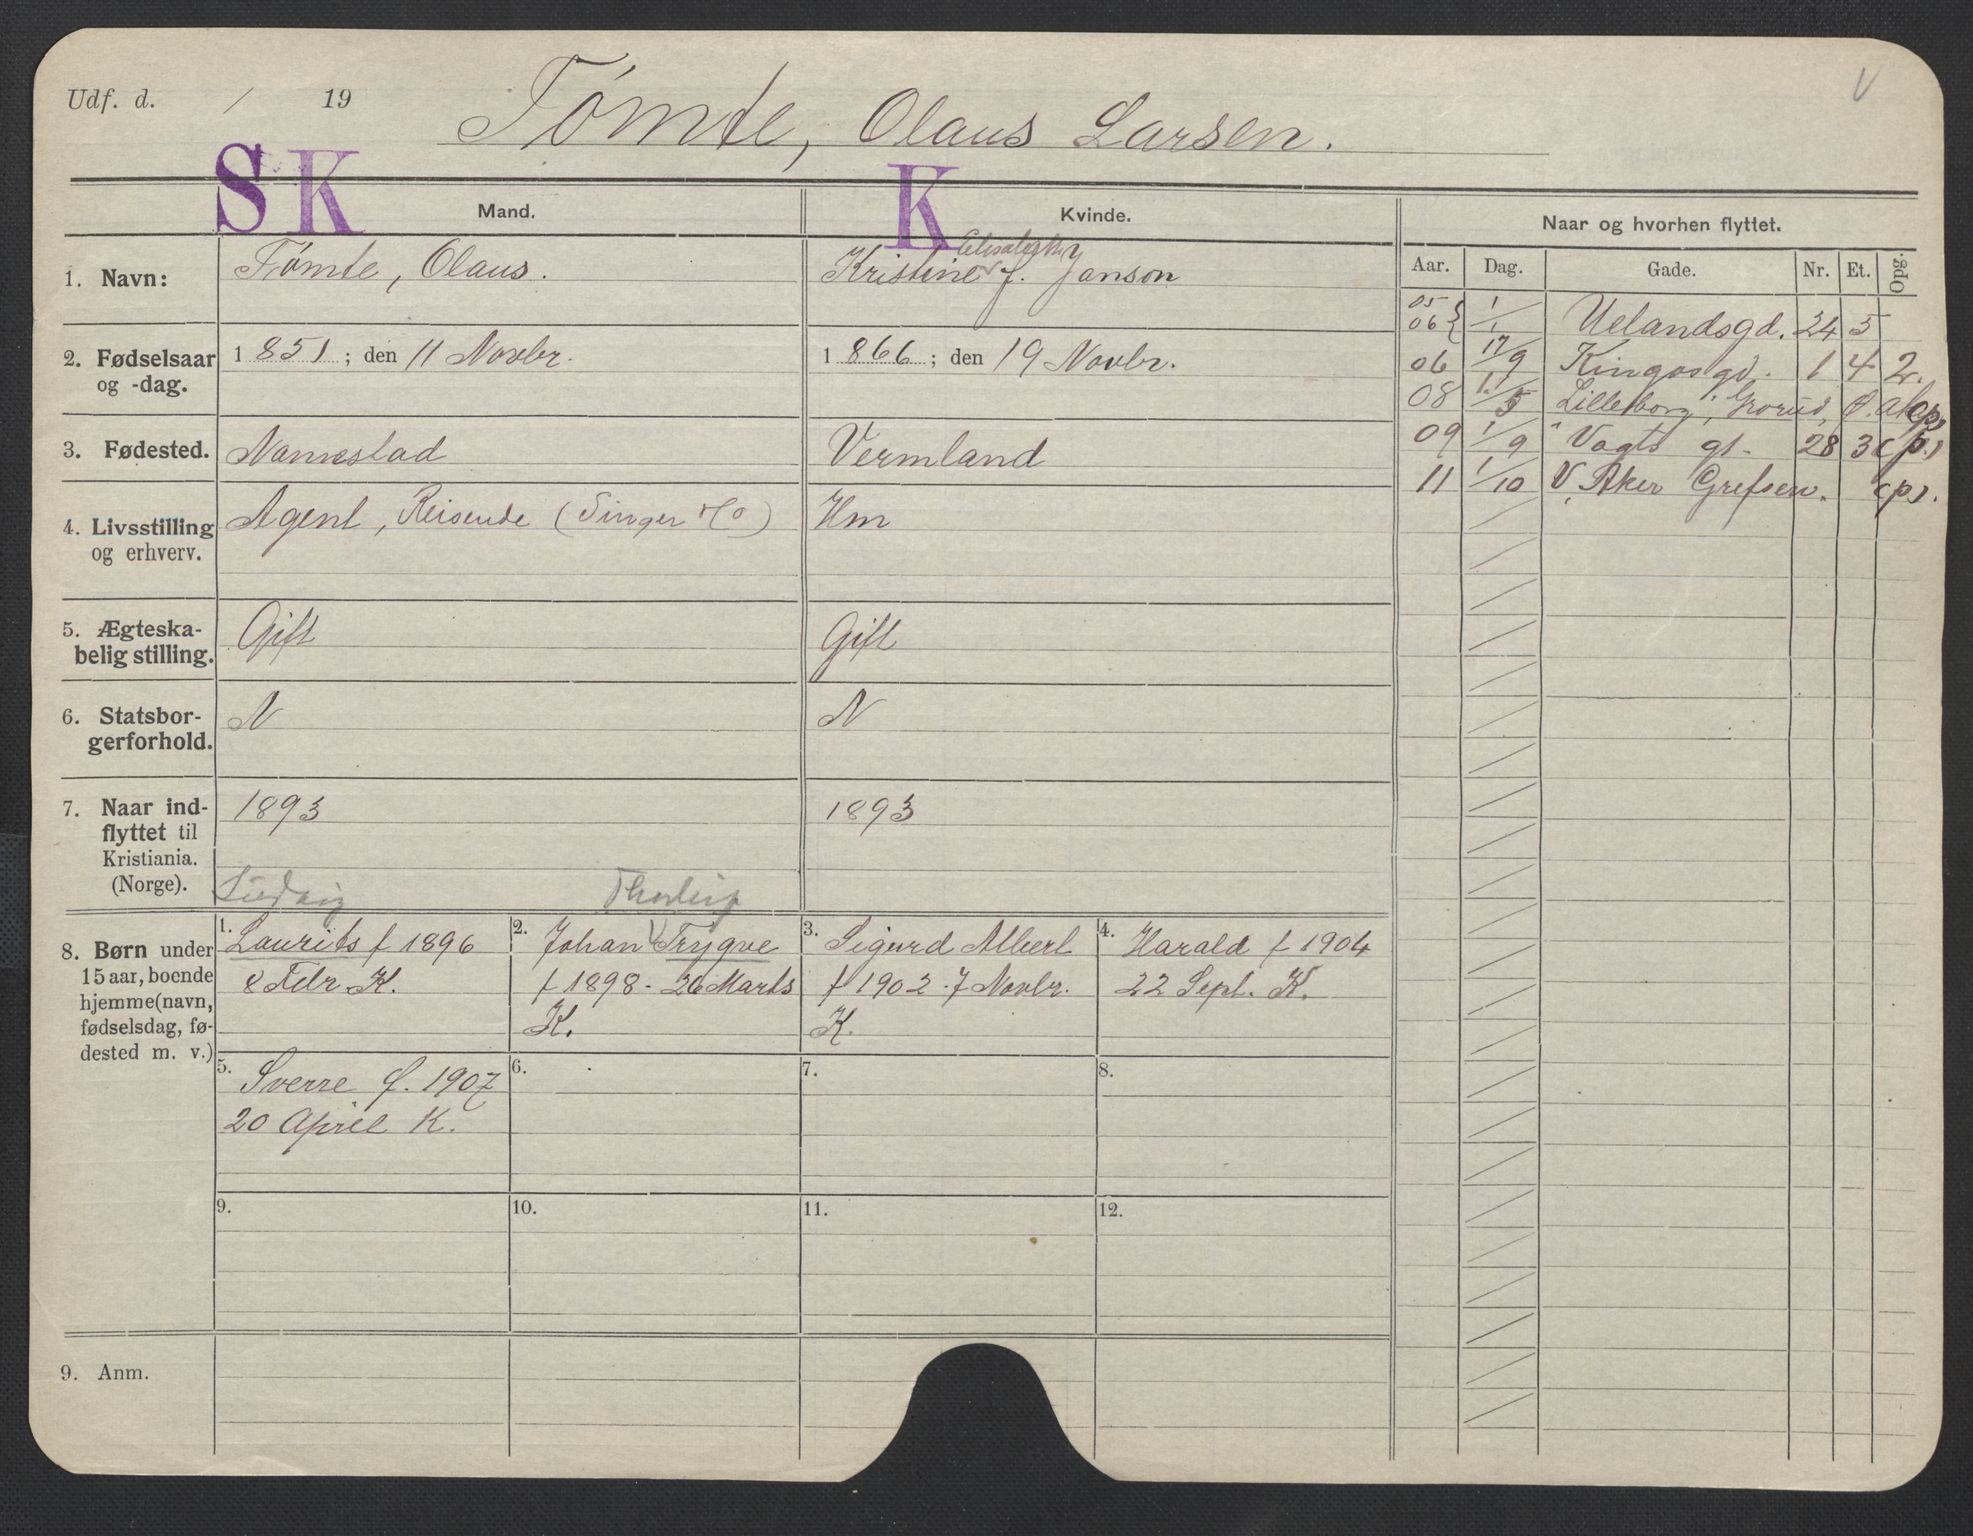 Udf. d. / 19
Tømte, Olaus Larsen.
V
S K
K
Mand.
Kvinde.
Naar og hvorhen flyttet.
Aar. Dag. Gade. Nr. Et. Opg.
1. Navn:
Tømte, Olaus.
Elisabeth
Kristine f. Janson
2. Fødselsaar
og -dag.
1851; den 11 Novbr.
1866; den 19 Novbr.
3. Fødested.
Nannestad
Vermland
4. Livsstilling
og erhverv.
Agent, Reisende (Singer Co)
Hm
5. Ægteska-
belig stilling.
Gift
Gift
6. Statsbor-
gerforhold.
N
N
7. Naar ind-
flyttet til
Kristiania.
(Norge).
1893
1893
8. Børn under
15 aar, boende
hjemme (navn,
fødselsdag, fø-
dested m. v.)
Ludvig
1. Laurits f 1896
8 Febr. K.
Thorleif
2. Johan V Trygve
f 1898 - 26 Marts
K.
3. Sigurd Albert
f 1902 - 7 Novbr.
K.
4. Harald f 1904
22 Sept. K.
5. Sverre f. 1907
20 April K.
6.
7.
8.
9.
10.
11.
12.
9. Anm.
05
06 } 1/1 Uelandsgd. 24 5
06 17/9 Kingosgd. 1 4 2.
08 1/5 Lilleborg, Grorud,
09 1/9 Vogts gt. 28 3 (p.)
11 1/10 V. Aker Grefsen. (p).